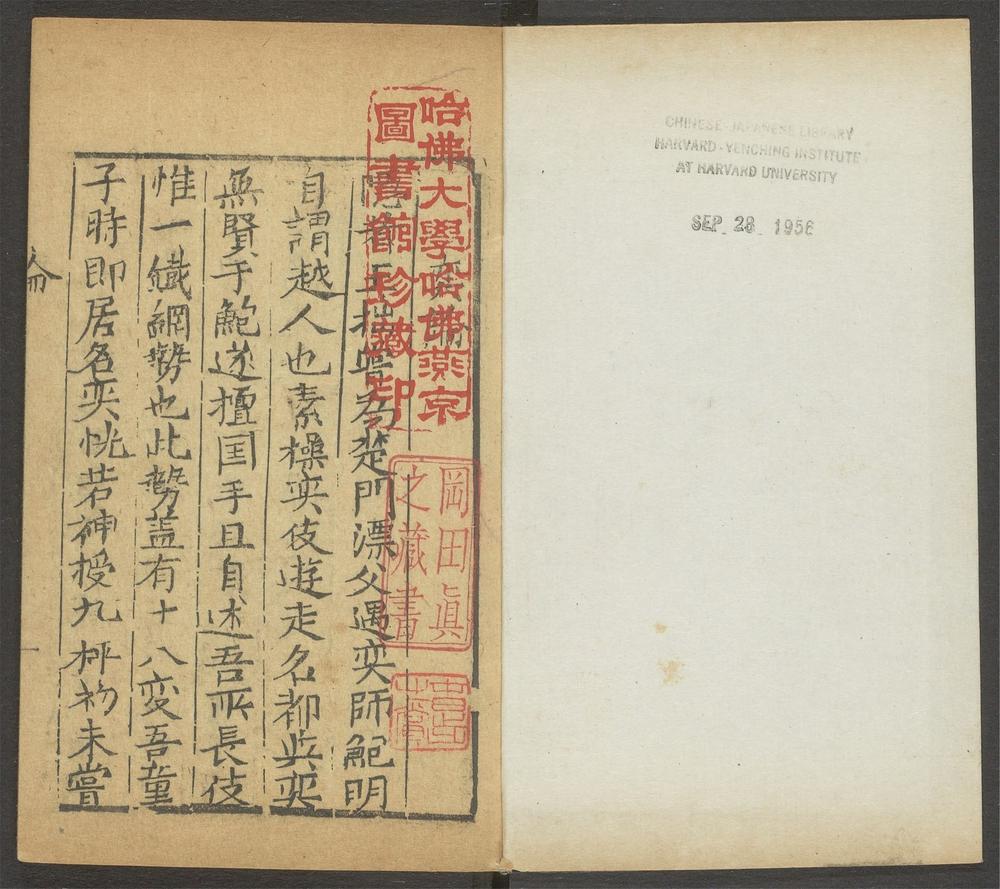 CHINESE-JAPANESE LIBRARY
HARVARD-YENCHING INSTITUTE
AT HARVARD UNIVERSITY
SEP 28 1956
哈佛大學哈佛燕京
圖書館珍藏印
岡田眞
之藏書
奕
楚門漂父遇奕師鮑明
自謂越人也素操奕伎遊走名都與奕
無賢于鮑遂擅国手且自述吾所長伎
惟一鐵網勢也此勢盖有十八変吾童
子時即居名奕恍若神授九枰初未嘗
論
一